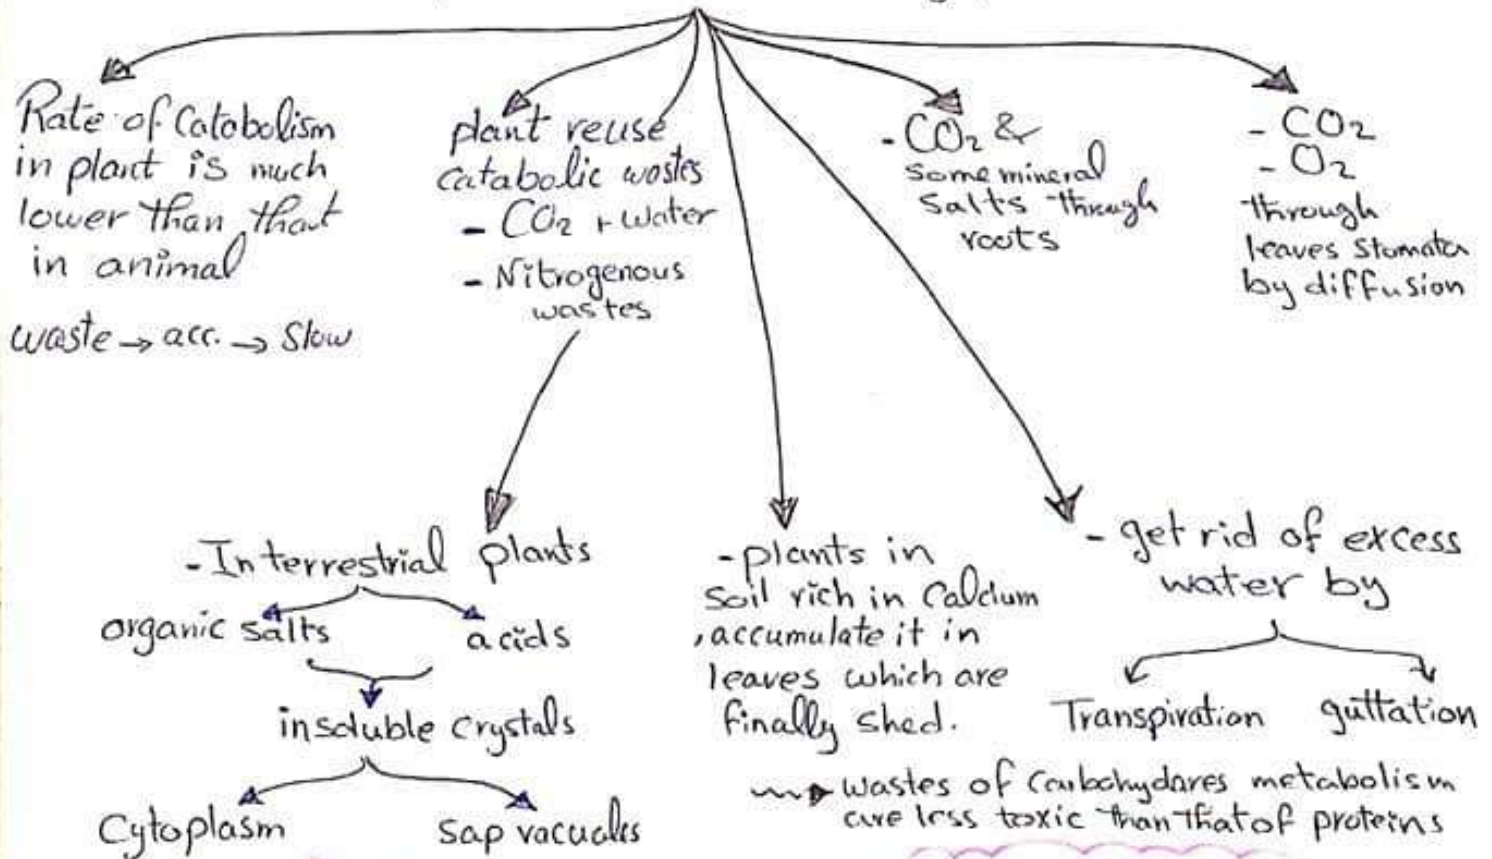 Rate of Catobolism
in plant is much
lower than that
in animal
waste → acc. → Slow
plant reuse
catabolic wastes
- CO2 + water
- Nitrogenous
wastes
- CO2 &
some mineral
salts through
roots
- CO2
- O2
through
leaves stomata
by diffusion
- In terrestrial plants
organic salts
acids
insoluble crystals
Cytoplasm
sap vacuoles
- plants in
soil rich in Calcium
, accumulate it in
leaves which are
finally shed.
- get rid of excess
water by
Transpiration
guttation
wastes of Carbohydares metabolism
are less toxic than that of proteins